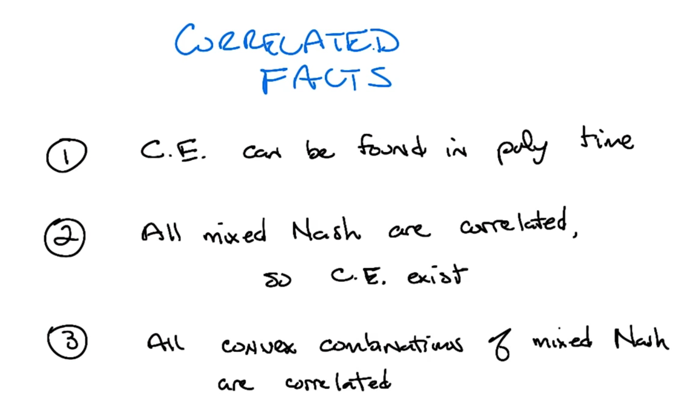 CORRELATED
FACTS
① C.E. can be found in poly time
② All mixed Nash are correlated,
so C.E. exist
③ All convex combinations of mixed Nash
are correlated